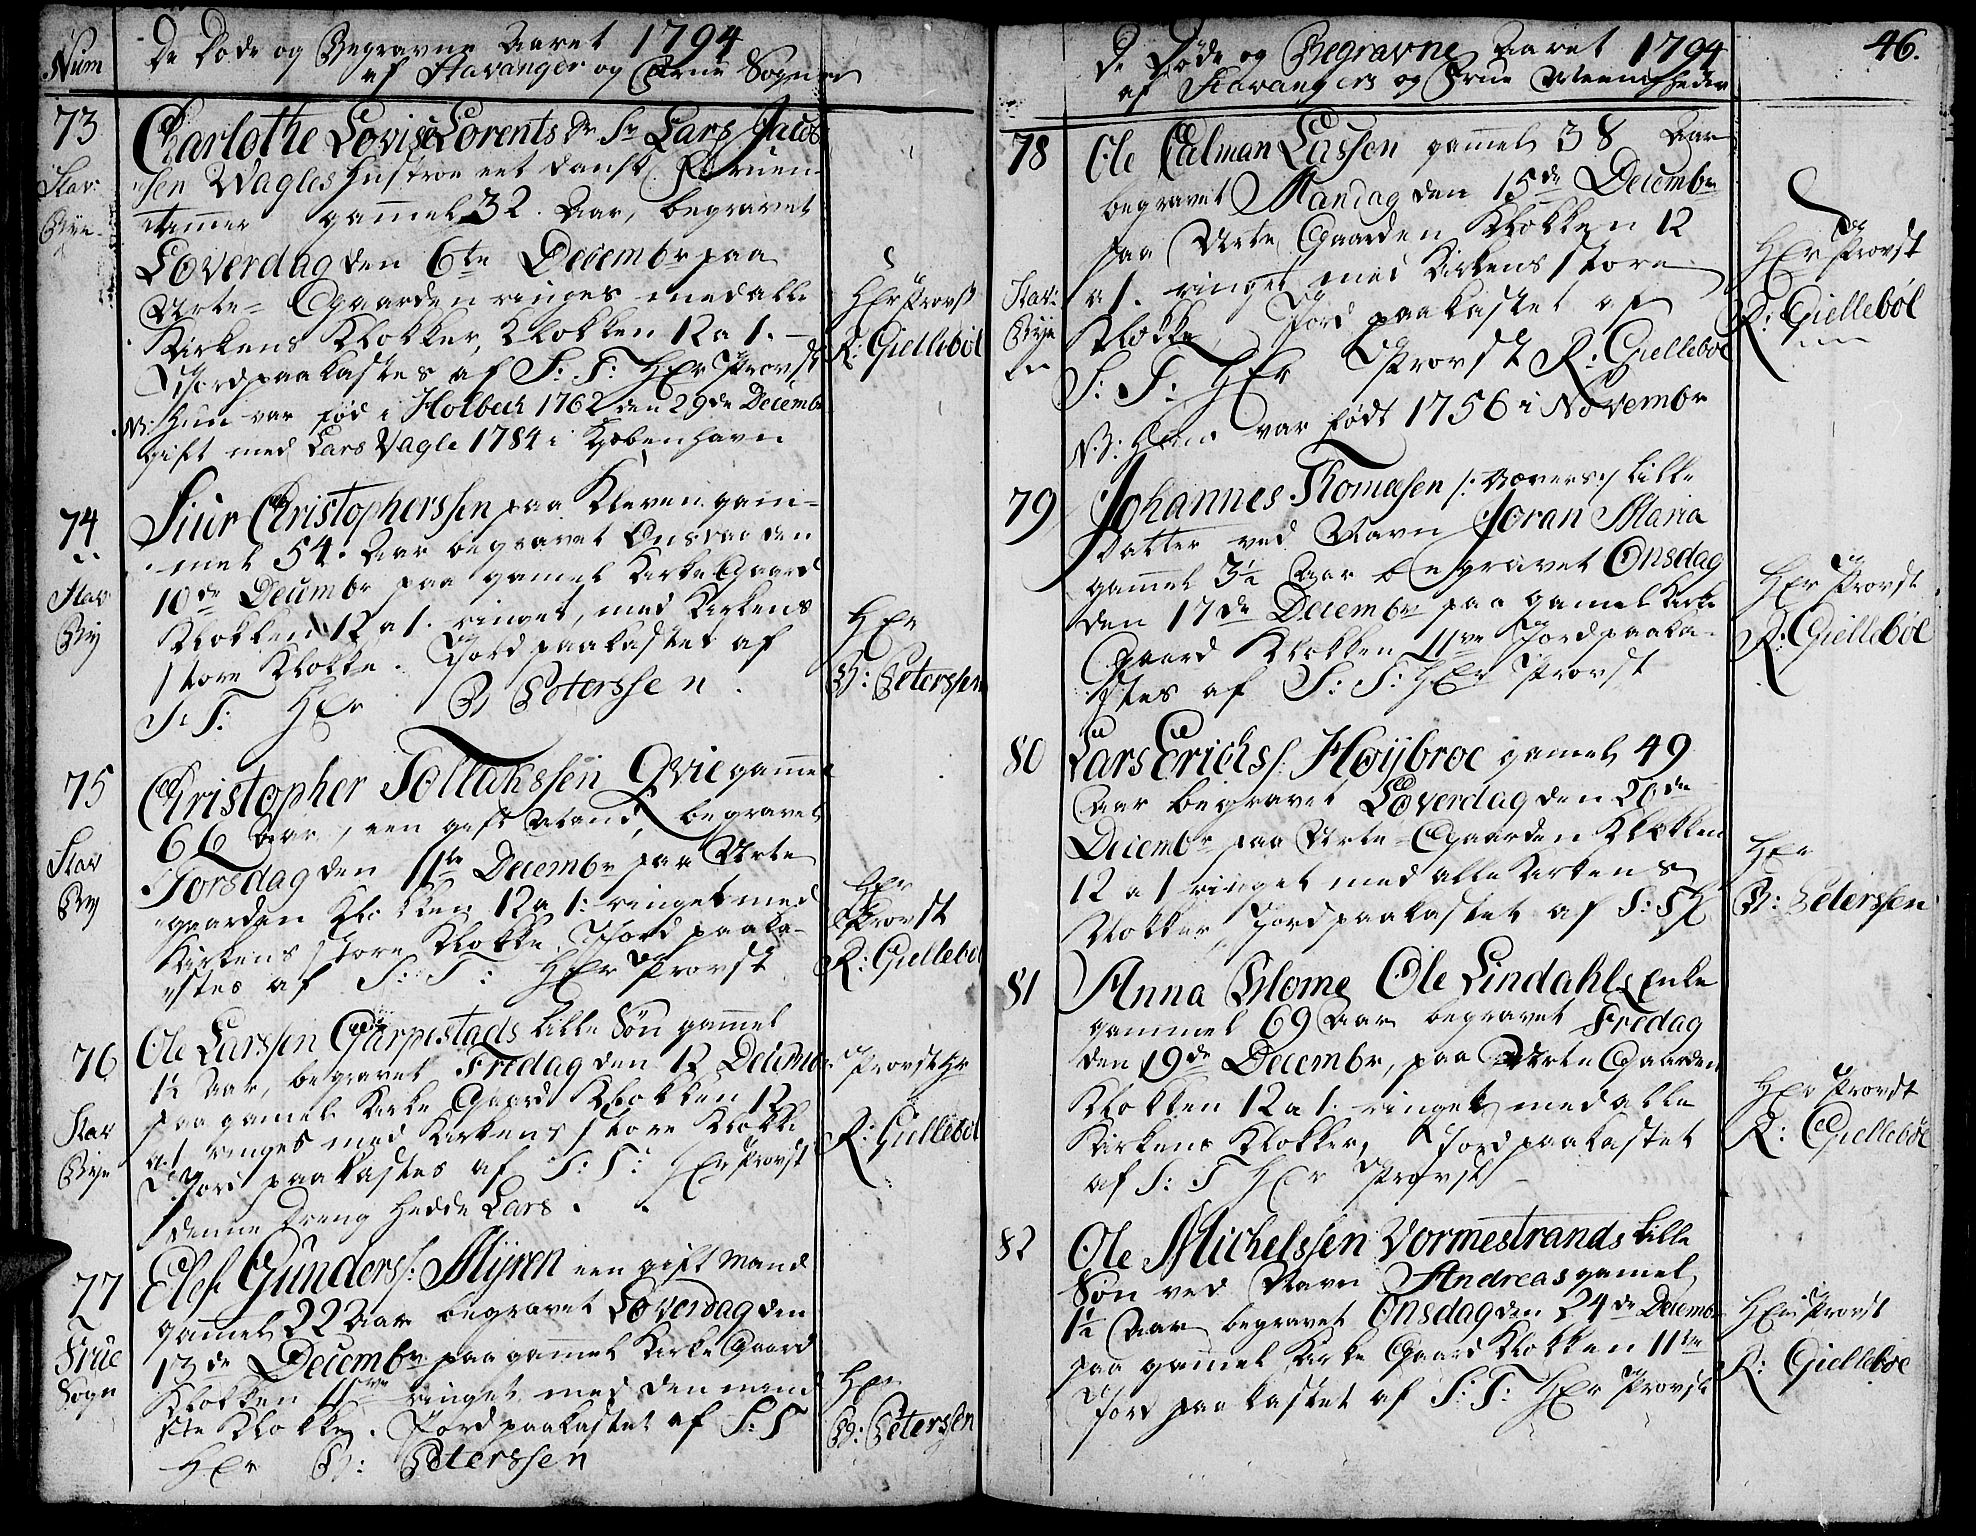 Num
De Døde og Begravne Aaret 1794
af Stavanger og Frue Sogner
73
Stav:
Bye
Charlothe Lovise Lorents Dr Sr Lars Jacob
sen Wagles Hustroe eet dansk Fruen
timer gamel 32. Aar, begravet
Løverdag den 6te Decembr paa
Urte-Gaarden ringes med alle
Kirkens Klokker, Klokken 12 a 1.
Jord paakastes af S: T: HEr Provst
NB: Hun var fød i Holbech 1762 den 29de Decembr
gift med Lars Vagle 1784 i Kiøbenhavn
HEr Provst
R: Giellebøl
74
Stav
By
Siur Christopherssen paa Kleven gam=
mel 54. Aar begravet Onsdag den
10de Decembr paa gamel Kirke Gaard
Klokken 12 a 1. ringet, med Kirkens
store Klokke. Jord paakastet af
S: T: HEr B Peterssen.
HEr
B: Peterssen
75
Stav
By
Christopher Tollakssen Qvie gamel
66 Aar, een gift Mand, begravet
Torsdag den 11te Decembr paa Urte
gaarden Klokken 12 a 1: ringet med
Kirkens store Klokke, Jord paaka-
stes af S: T: HEr Provst
HEr
Provst
R: Giellebøl
76
Stav
Bye
Ole Larssen Garpestads lille Søn gamel
1½ Aar, begravet Fredag den 12 Decembr
paa gamel Kirke Gaard Klokken 12
a 1 ringes med Kirkens store Klokke
Jord paakastes af S: T: HEr Provst
denne Dreng hedde Lars.
Provst Hr
R: Giellebøl
77
Frue
Sogn
Elef Gunders: Myren een gift Mand
gamel 22 Aar begravet Løverdag den
13de Decembr paa gamel Kirke Gaard
Klokken 11ve ringet med den mind
ste Klokke. Jord paakastet af S: T
HEr B: Peterssen
HEr
B: Peterssen
De Døde og Begravne Aaret 1794
af Stavangers og Frue Meenigheder
46.
78
Stav:
Bye
Ole Calman Lassen gamel 38 Aar
begravet Mandag den 15de Decembr
paa Urte Gaarden Klokken 12
a 1. ringet med Kirkens store
Klokke, Jord paakastet af
S: T: HEr Provst R: Giellebøl
NB: Hand var født 1756 i Novembr
HEr Provst
R: Giellebøl
79
Johannes Thomasen /: Vævers :/ lille
Datter ved Navn Joran Maria
gamel 3½ Aar begravet Onsdag
den 17de Decembr paa gamel Kirke
Gaard Klokken 11ve Jord paaka-
stes af S: T: HEr Provst
HEr Provst
R: Giellebøl
80
Lars Erichs: Høijbroe gamel 49
Aar begravet Løverdag den 20de
Decembr paa Urte-Gaarden Klokken
12 a 1 ringet med alle Kirkens
Klokker, Jord paakastet af S: T H
HEr
B: Peterssen
81
Anna Blome Ole Lindahls Enke
gammel 69 Aar begravet Fredag
den 19de Decembr, paa Urte Gaarden
Klokken 12 a 1. ringet med alle
Kirkens Klokker, Jord paakastet
af S: T HEr Provst
HEr Provst
R: Giellebøl
82
Ole Michelssen Vormestrands lille
Søn ved Navn Andreas gamel
1½ Aar begravet Onsdag den 24de Decembr
paa gamel Kirke Gaard Klokken 11ve
Jord paakastet af S: T: HEr Provst
HEr Provst
R: Giellebøl